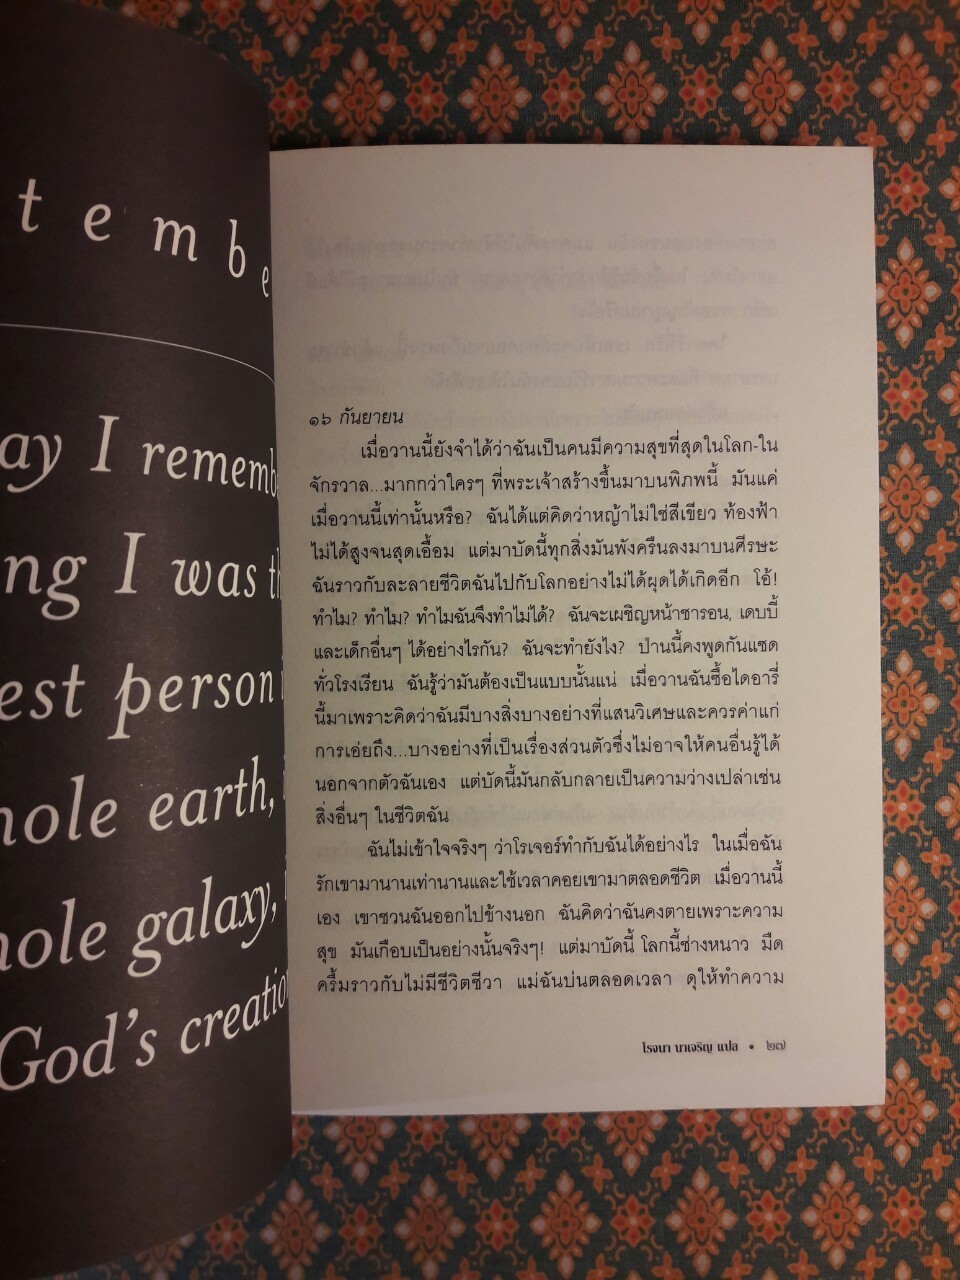 tembe
ay I rememb
ng I was th
est person
hole earth,
hole galaxy,
God's creatio
๑๖ กันยายน
เมื่อวานนี้ยังจำได้ว่าฉันเป็นคนมีความสุขที่สุดในโลก-ใน
จักรวาล...มากกว่าใครๆ ที่พระเจ้าสร้างขึ้นมาบนพิภพนี้ มันแค่
เมื่อวานนี้เท่านั้นหรือ? ฉันได้แต่คิดว่าหญ้าไม่ใช่สีเขียว ท้องฟ้า
ไม่ได้สูงจนสุดเอื้อม แต่มาบัดนี้ทุกสิ่งมันพังครืนลงมาบนศีรษะ
ฉันราวกับละลายชีวิตฉันไปกับโลกอย่างไม่ได้ผุดได้เกิดอีก โอ้!
ทำไม? ทำไม? ทำไมฉันจึงทำไม่ได้? ฉันจะเผชิญหน้าซารอน, เดบบี้
และเด็กอื่นๆ ได้อย่างไรกัน? ฉันจะทำยังไง? ป่านนี้คงพูดกันแซด
ทั่วโรงเรียน ฉันรู้ว่ามันต้องเป็นแบบนั้นแน่ เมื่อวานฉันซื้อไดอารี่
นี้มาเพราะคิดว่าฉันมีบางสิ่งบางอย่างที่แสนวิเศษและควรค่าแก่
การเอ่ยถึง...บางอย่างที่เป็นเรื่องส่วนตัวซึ่งไม่อาจให้คนอื่นรู้ได้
นอกจากตัวฉันเอง แต่บัดนี้มันกลับกลายเป็นความว่างเปล่าเช่น
สิ่งอื่นๆ ในชีวิตฉัน
ฉันไม่เข้าใจจริงๆ ว่าโรเจอร์ทำกับฉันได้อย่างไร ในเมื่อฉัน
รักเขามานานเท่านานและใช้เวลาคอยเขามาตลอดชีวิต เมื่อวานนี้
เอง เขาชวนฉันออกไปข้างนอก ฉันคิดว่าฉันคงตายเพราะความ
สุข มันเกือบเป็นอย่างนั้นจริงๆ! แต่มาบัดนี้ โลกนี้ช่างหนาว มืด
ครื้มราวกับไม่มีชีวิตชีวา แม่ฉันบ่นตลอดเวลา ดุให้ทำความ
โรจนา นาเจริญ แปล • ๒๗